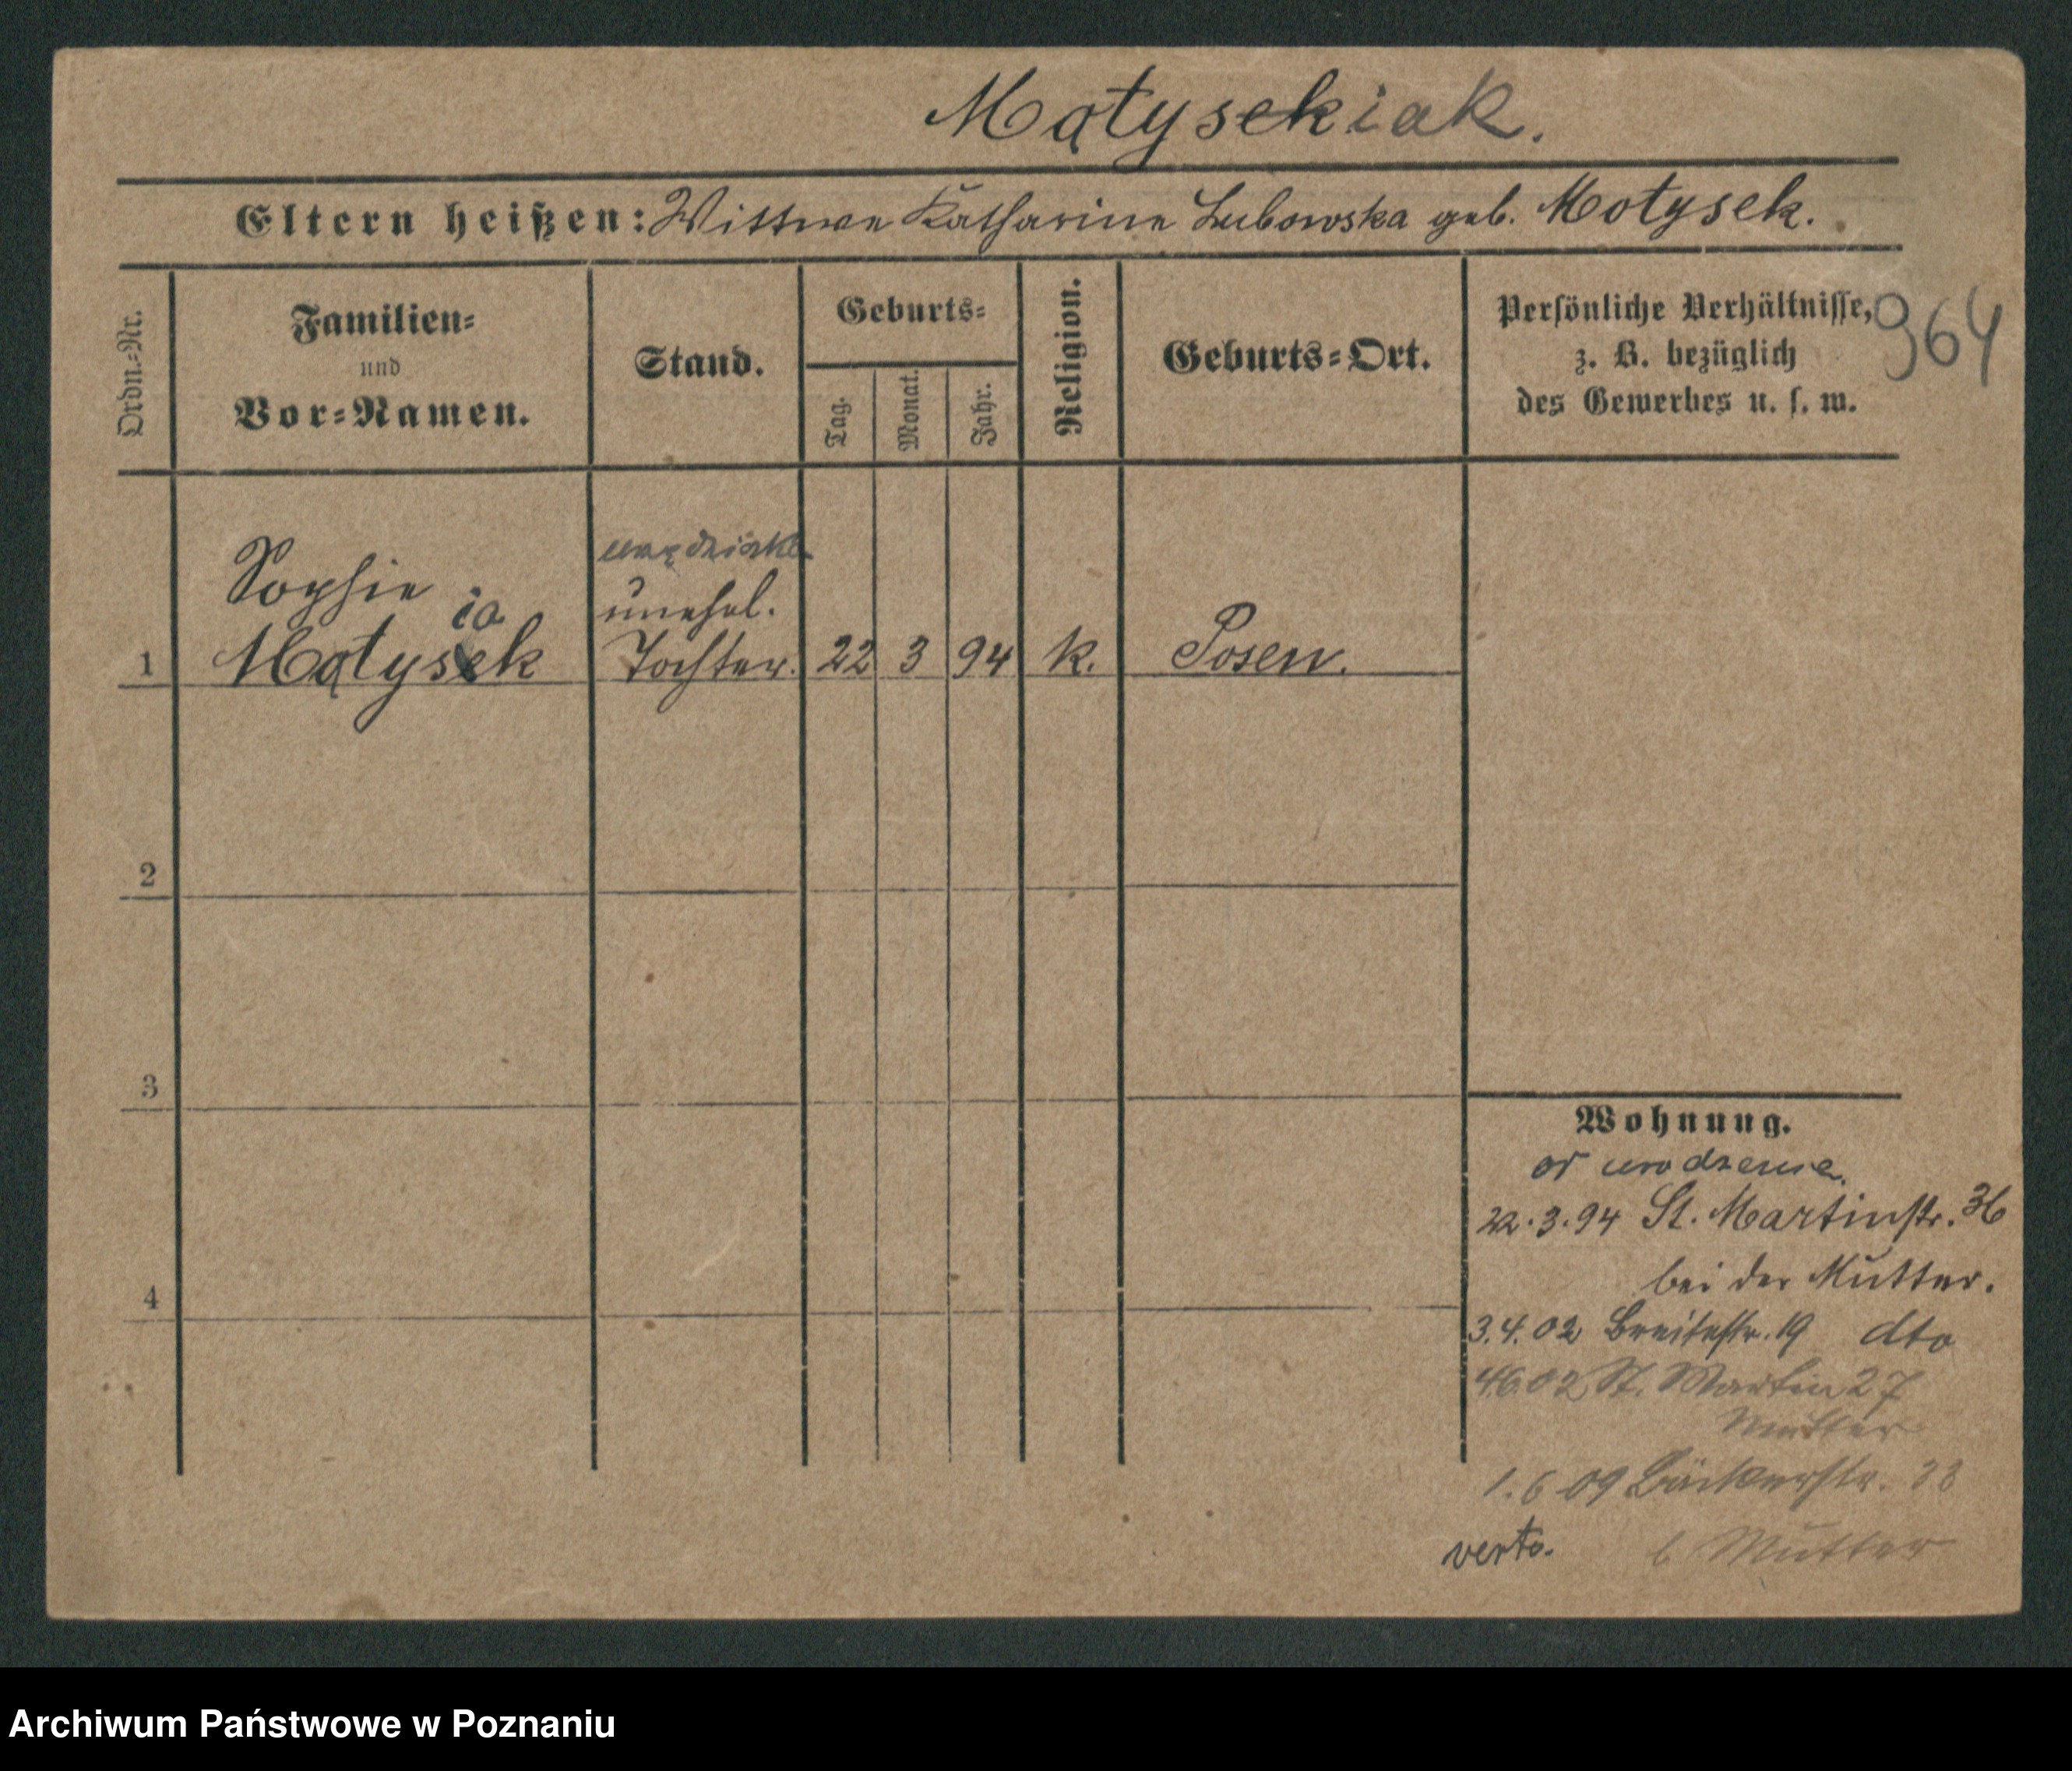 Matysekiak.
Eltern heißen: Wittwe Katharine Lubowska geb. Motysek.
Ordn.-Nr.
Familien-
und
Vor-Namen.
Stand.
Geburts-
Tag.
Monat.
Jahr.
Religion.
Geburts-Ort.
Persönliche Verhältnisse,
z. B. bezüglich
des Gewerbes u. s. w.
964
Sophie
ia
1 Matysek
unehel.
Tochter. 22 3 94 k. Posen.
2
3
4
Wohnung.
22.3.94 St. Martinstr. 36
bei der Mutter.
3.4.02 Breitestr. 19 dto
4.6.02 St. Martin 27
Mutter
1.6 09 Bäckerstr. 23
verto. b Mutter
Archiwum Państwowe w Poznaniu